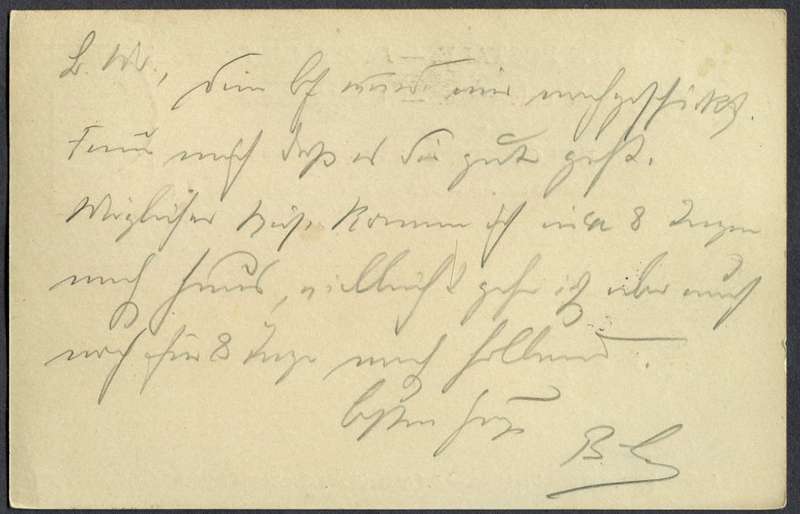 L. W., dein Bf wurde mir nachgeschickt.
Freue mich daß es dir gut geht.
Möglicher Weise komme ich in ca 8 Tagen
nach Haus, vielleicht gehe ich aber auch
noch für 8 Tage nach Holland.
besten Gruß
B